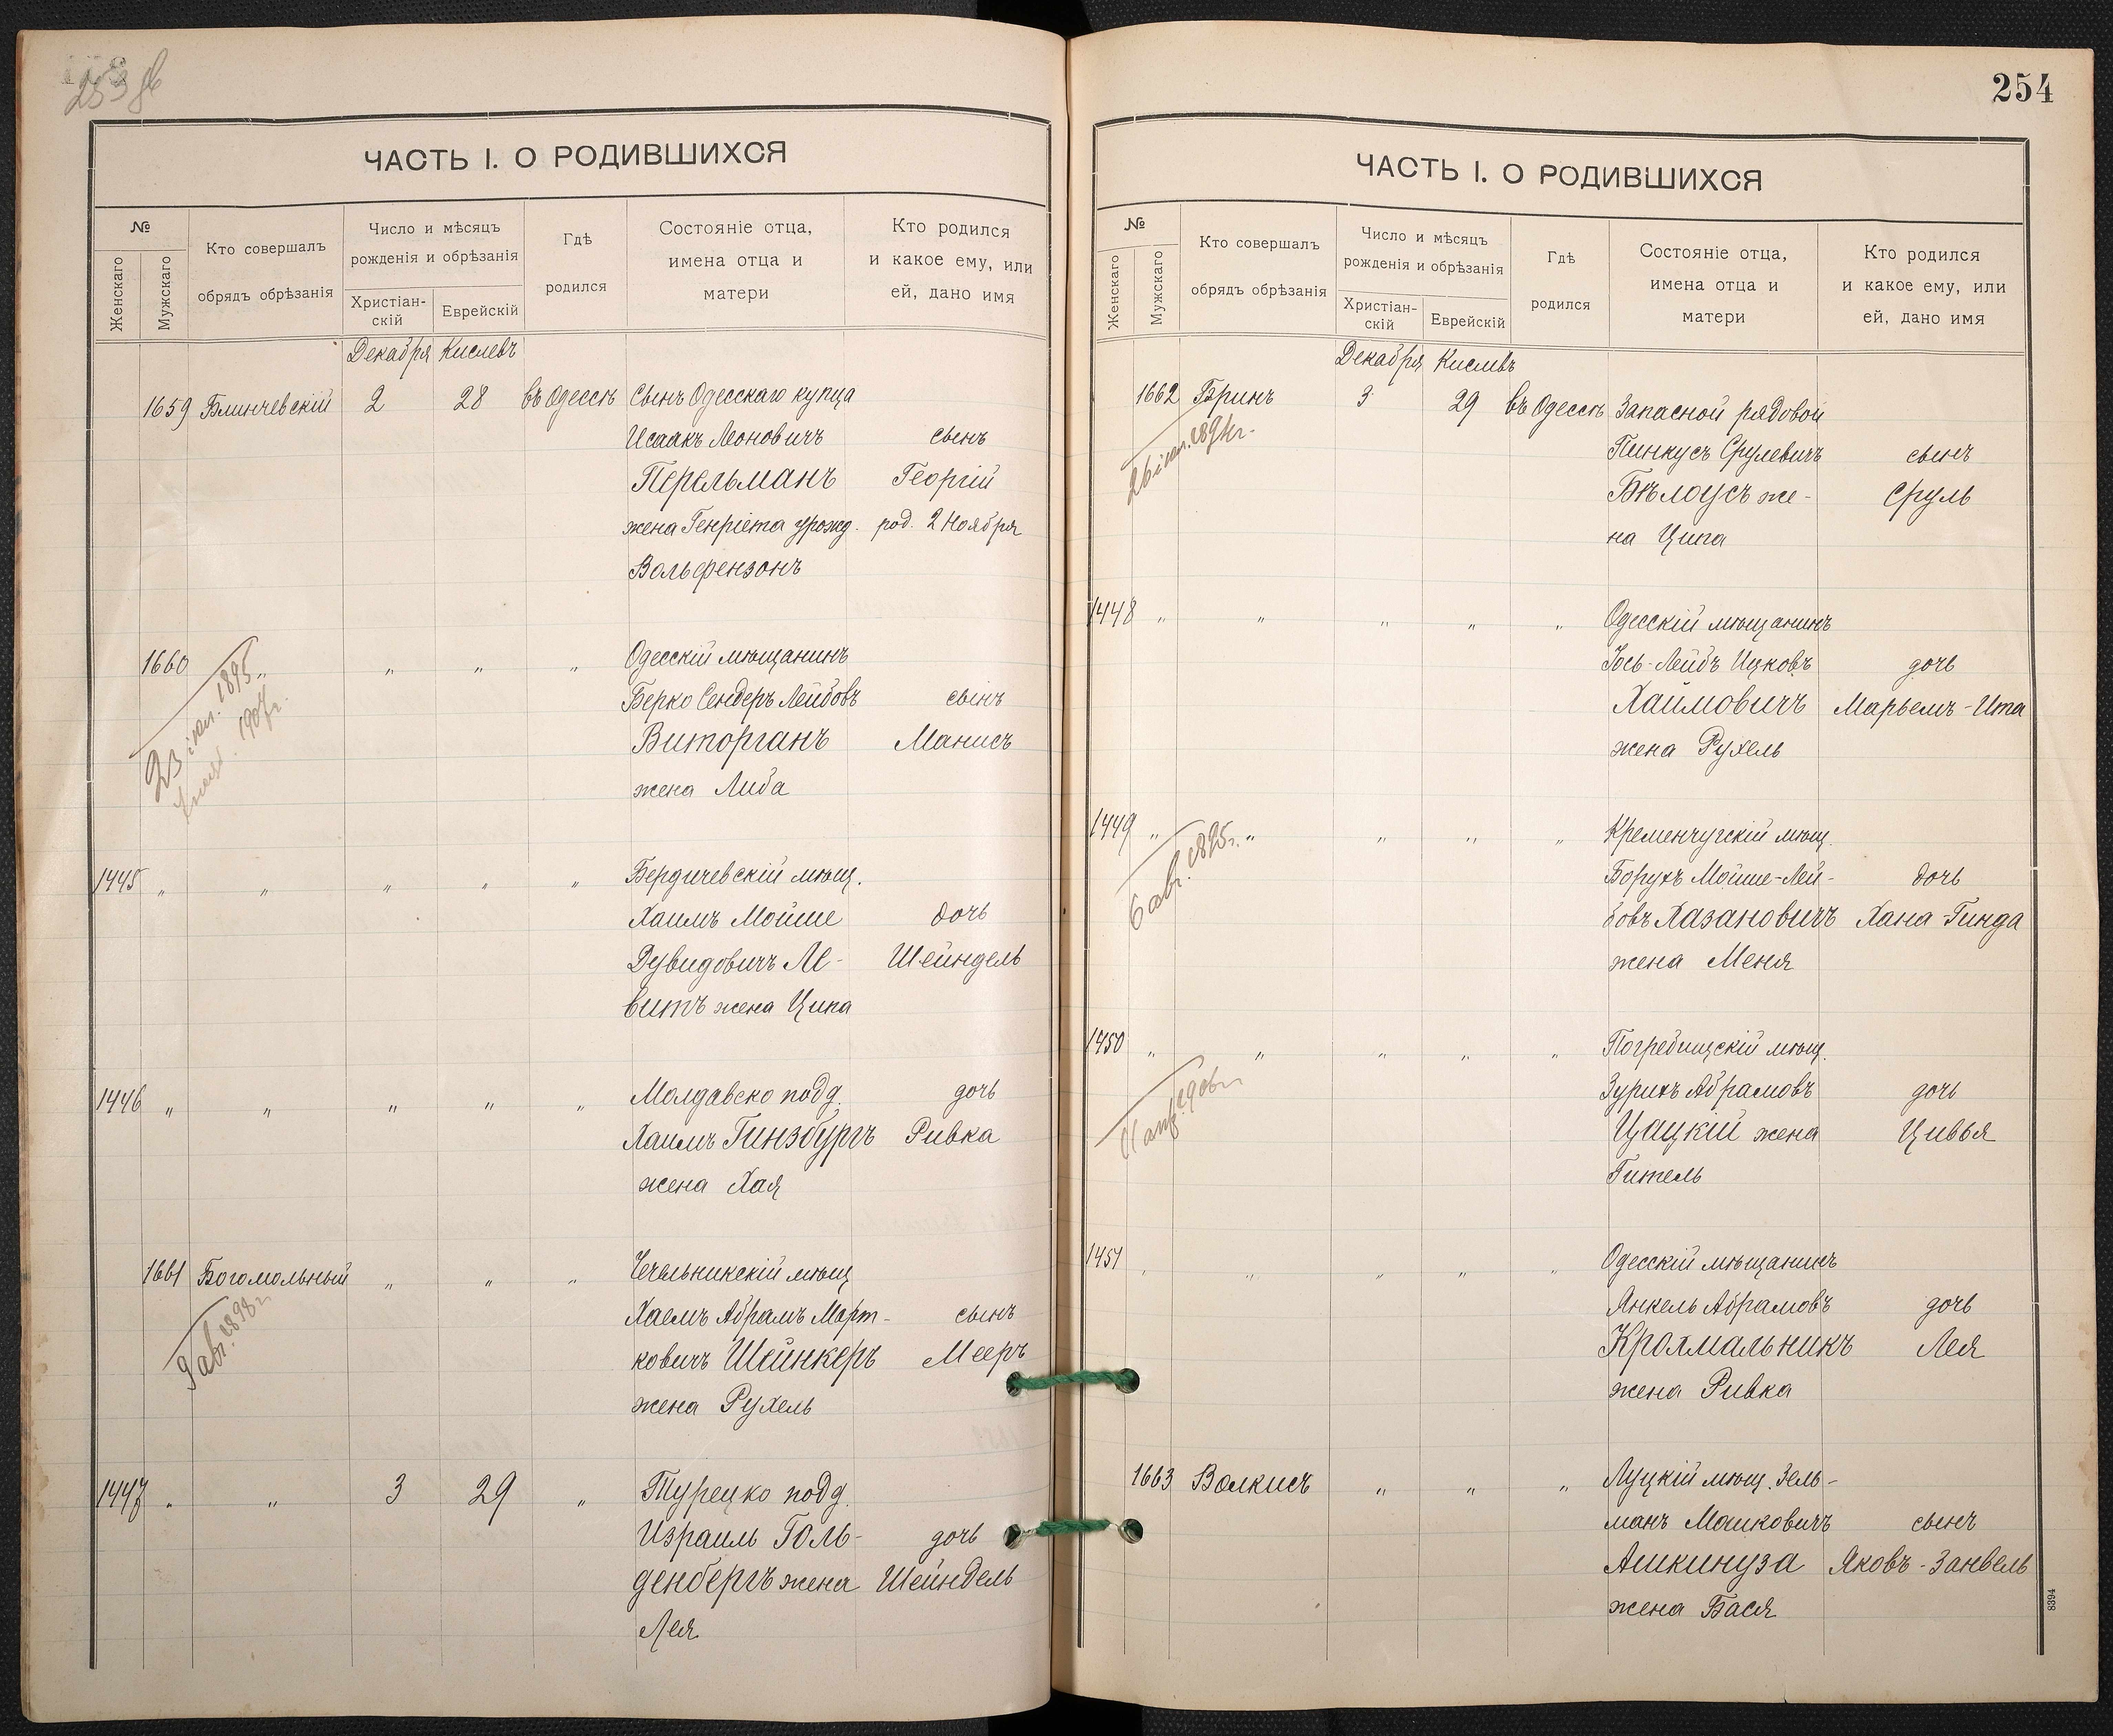 253 об
ЧАСТЬ I. О РОДИВШИХСЯ
№
Женскаго
Мужскаго
Кто совершалъ
обрядъ обрѣзанія
Число и мѣсяцъ
рожденія и обрѣзанія
Христіан-
скій
Еврейскій
Гдѣ
родился
Состояніе отца,
имена отца и
матери
Кто родился
и какое ему, или
ей, дано имя
Декабря Кислевъ
1659 Блинчевскій 2 28 въ Одессѣ Сынъ Одесскаго купца
Исаакъ Леоновичъ сынъ
Перельманъ Георгій
жена Генріета урожд. род. 2 Ноября
Вольфензонъ
1660 " " " " Одесскій мѣщанинъ
Берко Сендеръ Лейбовъ сынъ
Виторганъ Манисъ
жена Либа
23 іюл. 1895
1907г.
1445 " " " " " Бердичевскій мѣщ.
Хаимъ Мойше дочь
Дувидовичъ Ле- Шейндель
витъ жена Ципа
1446 " " " " " Молдавско подд. дочь
Хаимъ Гинзбургъ Ривка
жена Хая
1661 Богомольный " " " Чечельникскій мѣщ
Хаемъ Абрамъ Март- сынъ
ковичъ Шейнкеръ Мееръ
жена Рухель
9 авг. 1898г
1447 " " 3 29 " Турецко подд.
Израиль Голь- дочь
денбергъ жена Шейндель
Лея
254
ЧАСТЬ I. О РОДИВШИХСЯ
№
Женскаго
Мужскаго
Кто совершалъ
обрядъ обрѣзанія
Число и мѣсяцъ
рожденія и обрѣзанія
Христіан-
скій
Еврейскій
Гдѣ
родился
Состояніе отца,
имена отца и
матери
Кто родился
и какое ему, или
ей, дано имя
Декабря Кислевъ
1662 Бринъ 3 29 въ Одессѣ Запасной рядовой
Пинкусъ Срулевичъ сынъ
Бѣлоусъ же- Сруль
на Ципа
26 іюл. 1894г.
1448 " " " " " Одесскій мѣщанинъ
Іось-Лейбъ Ицковъ дочь
Хаимовичъ Марьемъ-Ита
жена Рухель
1449 " " " " " Кременчугскій мѣщ.
Борухъ Мойше-Лей- дочь
бовъ Хазановичъ Хана-Гинда
жена Меня
6 авг. 1895г.
1450 " " " " " Погребищскій мѣщ.
Зурихъ Абрамовъ дочь
Цацкій жена Цивья
Гитель
11 апр. 1906г
1451 " " " " " Одесскій мѣщанинъ
Янкель Абрамовъ дочь
Крохмальникъ Лея
жена Ривка
1663 Волкисъ " " " Луцкій мѣщ. Зель-
манъ Машковичъ сынъ
Ашкинуза Яковъ-Занвель
жена Бася
8394